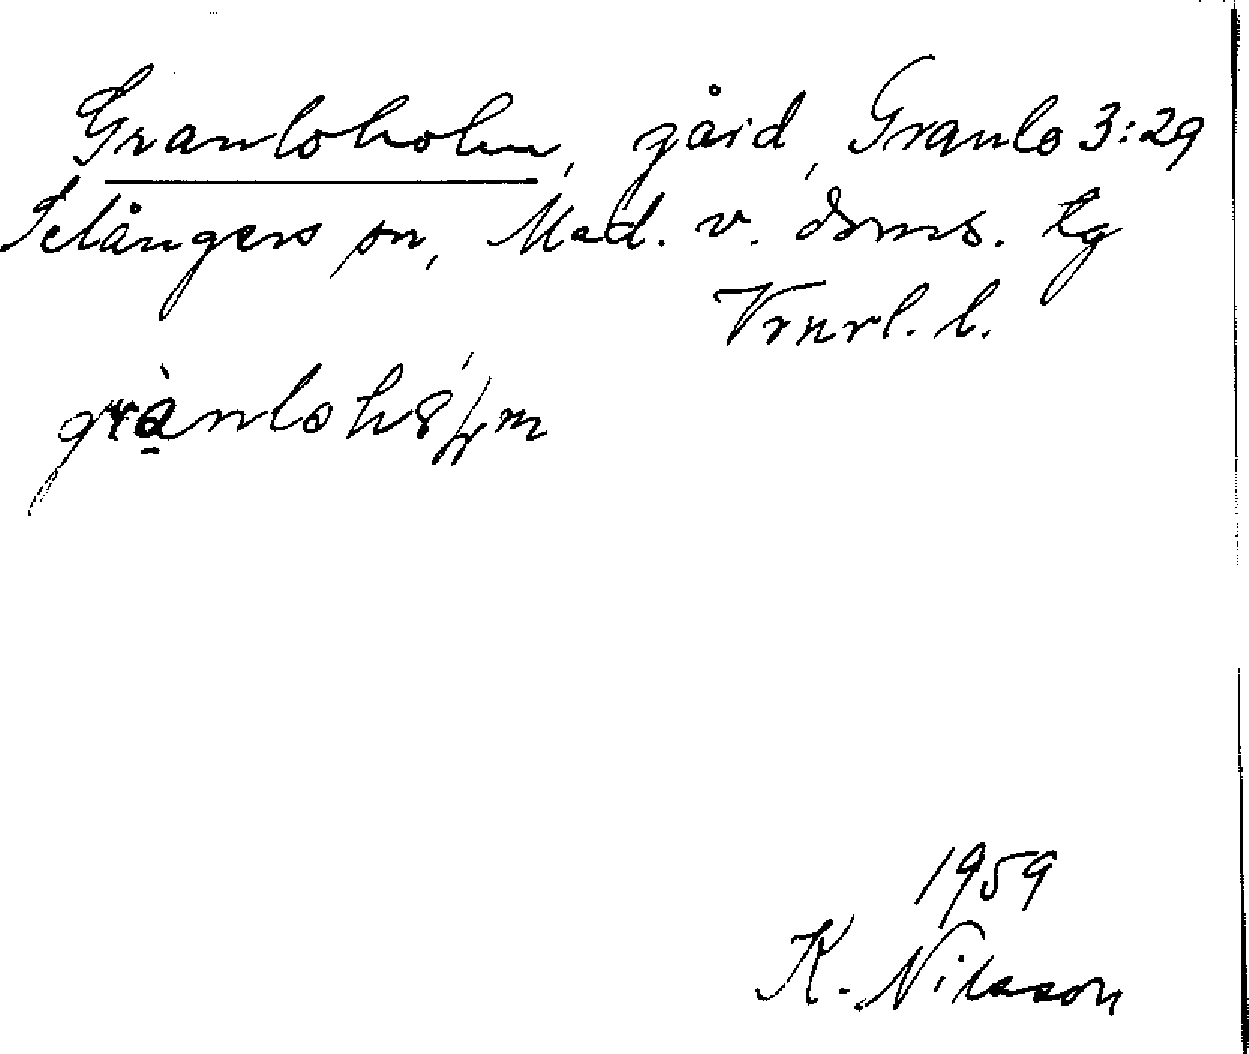 Granloholm, gård, Granlo 3:29
Selångers sn, Med. v. doms. tg
Vrnrl. l.
grànloh8l̥m
1959
K. Nilsson